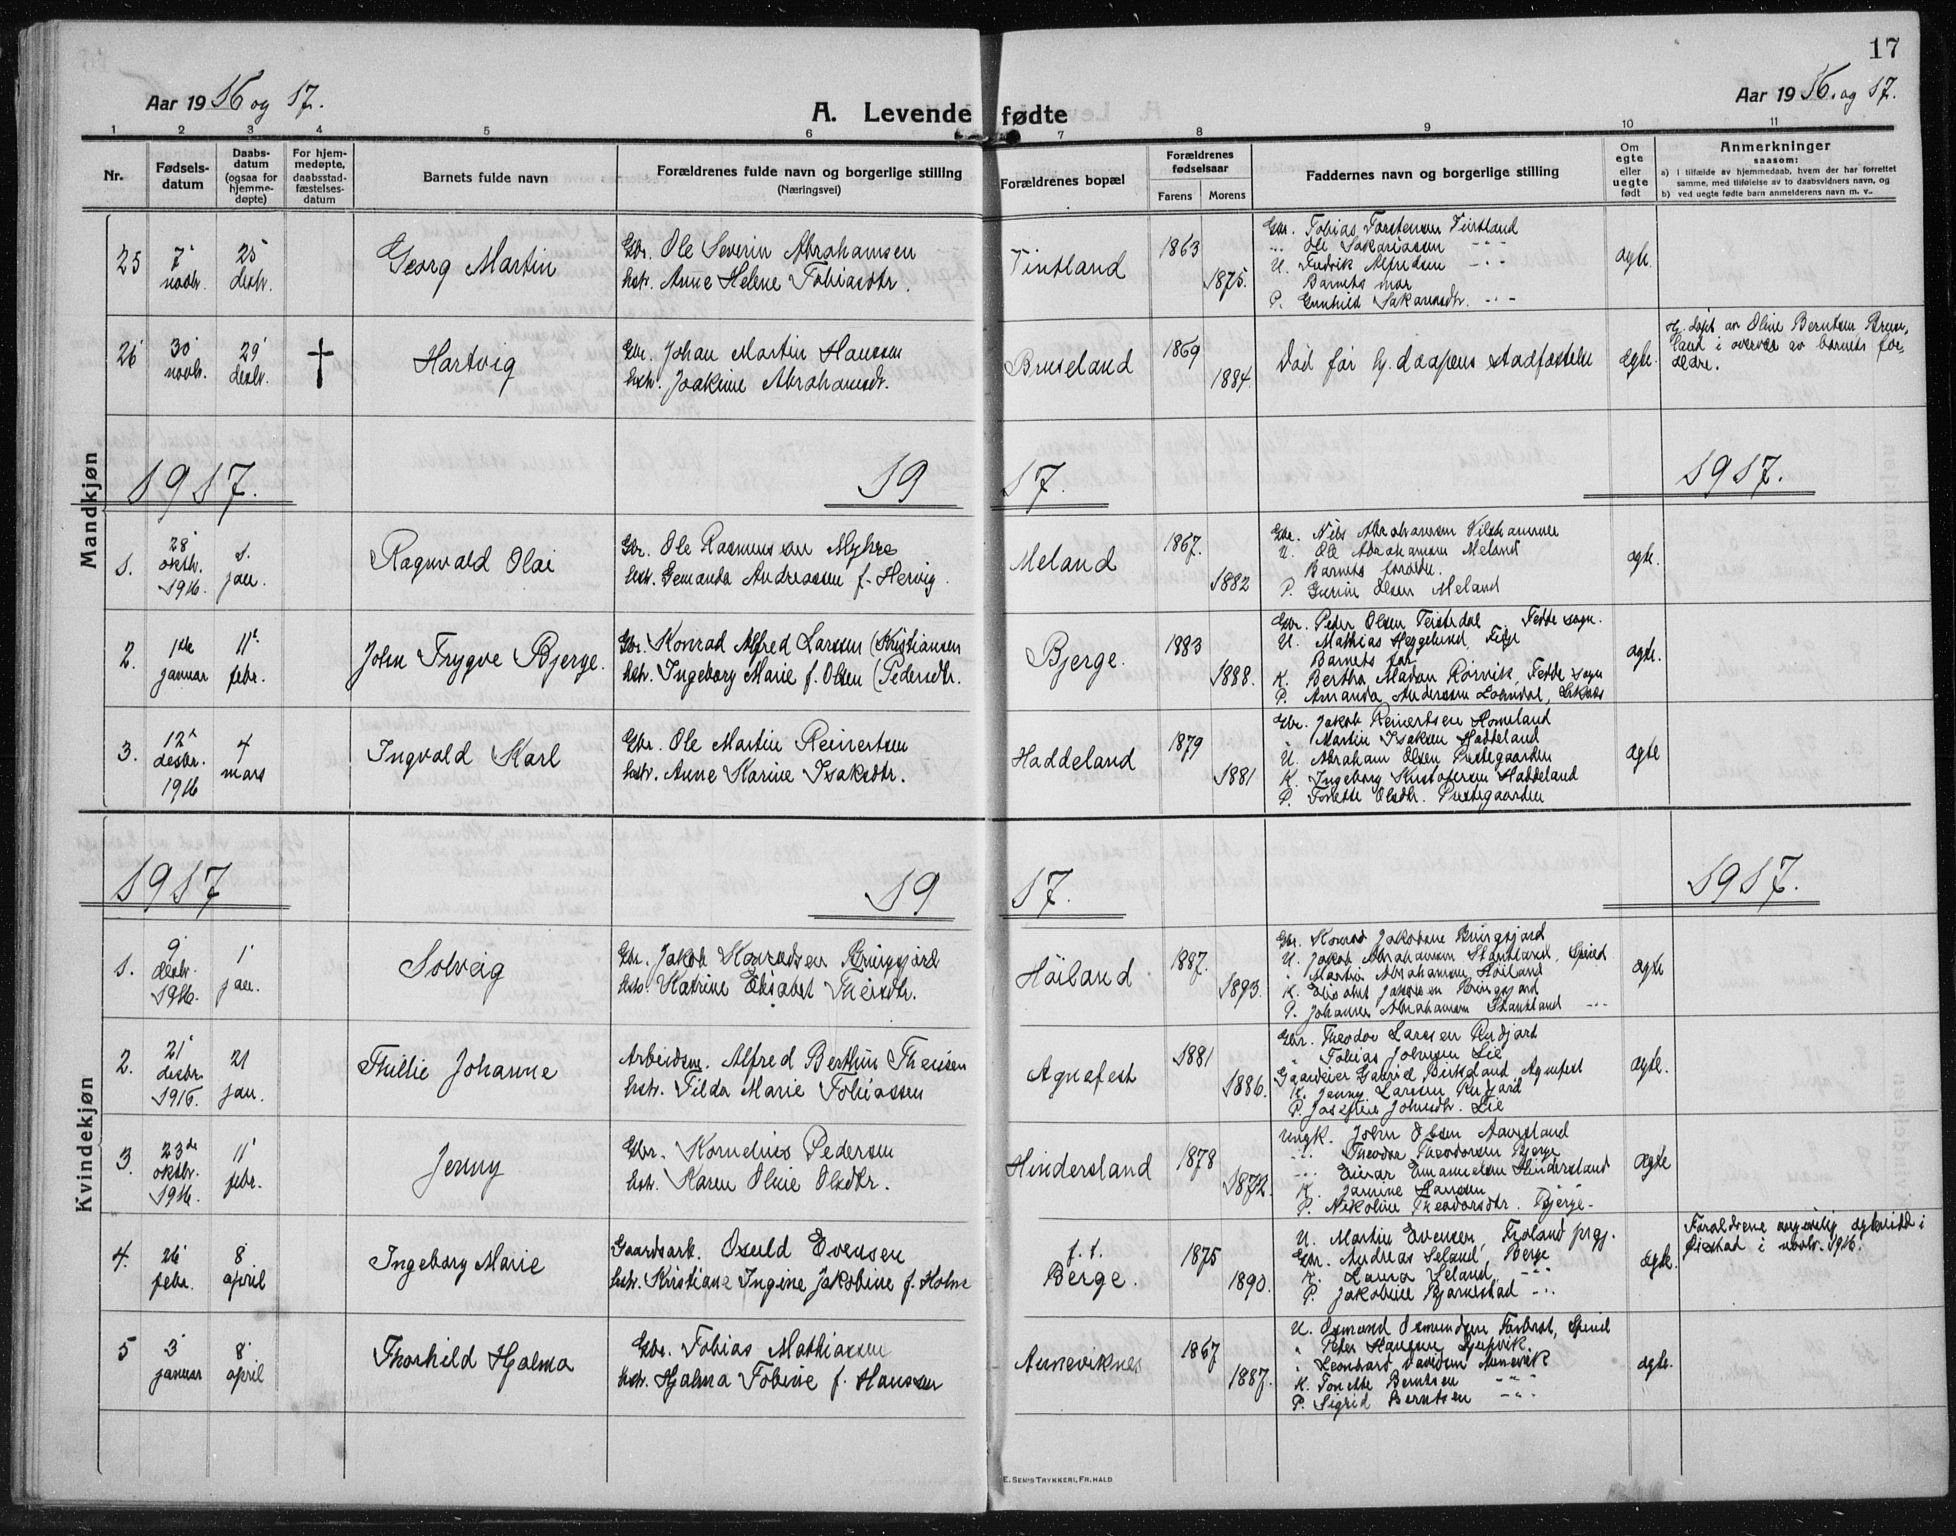 17
Aar 1916 og 17.
A. Levende fødte
Aar 1916 og 17.
1 2 3 4 5 6 7 8 9 10 11
Nr.
Fødsels-
datum
Daabs-
datum
(ogsaa for
hjemme-
døpte)
For hjem-
medøpte,
daabsstad-
fæstelses-
datum
Barnets fulde navn
Forældrenes fulde navn og borgerlige stilling
(Næringsvei)
Forældrenes bopæl
Forældrenes
fødselsaar
Farens Morens
Faddernes navn og borgerlige stilling
Om
egte
eller
uegte
født
Anmerkninger
saasom:
a) I tilfælde av hjemmedaab, hvem der har forrettet
samme, med tilføielse av to daabsvidners navn, og
b) ved uegte fødte barn anmelderens navn m. v.
Mandkjøn
25
7'
novbr.
25'
desbr.
Georg Martin
Gbr. Ole Severin Abrahamsen
hstr. Anne Helene Tobiasdtr.
Vintland
1863
1875.
Gbr. Tobias Torstensen Vintland
Ole Sakariassen
U. Fredrik Alfredsen
Barnets mor
P. Gunhild Sakariasdtr.
ægte.
26
30'
novbr.
29'
desbr.
†
Hartvig
Gbr. Johan Martin Hanssen
hstr. Joakine Abrahamsdtr.
Bruseland
1869
1884.
Død før hj. daapens stadfæstelse
ægte.
Hj. døpt av Oline Berntsen Bruse-
land i overvær av barnets for-
ældre.
1917. 19 17. 1917.
1.
28'
oktbr.
1916.
1.
jan.
Ragnvald Olai
Gbr. Ole Rasmussen Myhre
hstr. Gemanda Andreassen f. Hervig.
Meland
1867.
1882
Gbr. Nils Abrahamsen
U. Ole Abrahamsen Meland
Barnets forældre.
P. Gurine Olsen Meland
ægte.
2.
1ste
januar
11te
febr.
John Trygve Bjerge.
Gbr. Konrad Alfred Larssen (Kristiansen
hstr. Ingeborg Marie f. Olsen (Pedersdtr.
Bjerge.
1883
1888.
Gbr. Peder Olsen Teistedal, Fedde sogn.
U. Mathias Heggelund,
Barnets far
K. Bertha Madsen Rørvik, Fedde sogn
P. Amanda Anderssen
ægte.
3.
12te
desbr.
1916
4
mars
Ingvald Karl
Gbr. Ole Martin Reinertsen
hstr. Anne Karine Isaksdtr.
Haddeland
1879
1881
Gbr. Jakob Reinertsen Homeland
Martin Isaksen Haddeland
U. Abraham Olsen Prestegaarden
K. Ingeborg Kristofersen Haddeland
P. Tonette Olsdtr. Prestegaarden
ægte
Kvindekjøn
1917 19 17. 1917.
1.
9'
desbr.
1916.
1'
jan.
Solveig
Gbr. Jakob Konradsen Ringsjord
hstr. Katrine Elisabet Theisdtr.
Høiland
1887.
1893.
Gbr. Konrad Jakobsen Ringsjord
U. Jakob Abrahamsen Stanland, Spind
Martin Abrahamsen Høiland
K. Elisabet Jakobsen Ringsjord
P. Johanne Abrahamsen
ægte
2.
21'
desbr.
1916.
21
jan.
Thillie Johanne
Arbeidsm. Alfred Berthin Theisen
hstr. Tilda Marie Tobiassen
Agnefest
1881
1886.
Gbr. Theodor Larssen Rudjord
Tobias Johnsen Lie
Gaardeier Gabriel Birkeland Agnefest
K. Jenny Larssen Rudjord
P. Josefine Johnsdtr. Lie
ægte.
3.
23de
oktbr.
1916.
11'
febr.
Jenny
Gbr. Kornelius Pedersen
hstr. Karen Oline Olsdtr.
Hindersland
1878
1872.
Ungk. John Olsen
Theodor Theodorsen Bjerge
Einar Emanuelsen Hindersland
K. Jannine Hansen
P. Nikoline Theodorsdtr. Bjerge.
ægte
4.
26
febr.
8'
april
Ingeborg Marie
Gaardsarb. Osuld Evensen
hstr. Kristiane Ingine Jakobine f. Holne
f. t.
Berge.
1875
1890.
U. Martin Evensen, Froland prgj.
Gbr. Andreas Seland, Berge
K. Laura Seland,
P. Jakobine Bjørnestad
ægte.
Forældrene angivelig egteviet i
Øiestad i novbr. 1916.
5
3'
januar
8'
april
Thorhild Hjalma
Gbr. Tobias Mathiassen
hstr. Hjalma Tobine f. Hanssen
Anneviknes
1867
1887.
U. Osmund Osmundsen, Farbrot, Spind
Peter Hanssen
Leonhard Davidsen Annevik
K. Tonette Berntsen
P. Sigrid Berntsen
ægte.
E. SEM'S TRYKKERI, FR. HALD